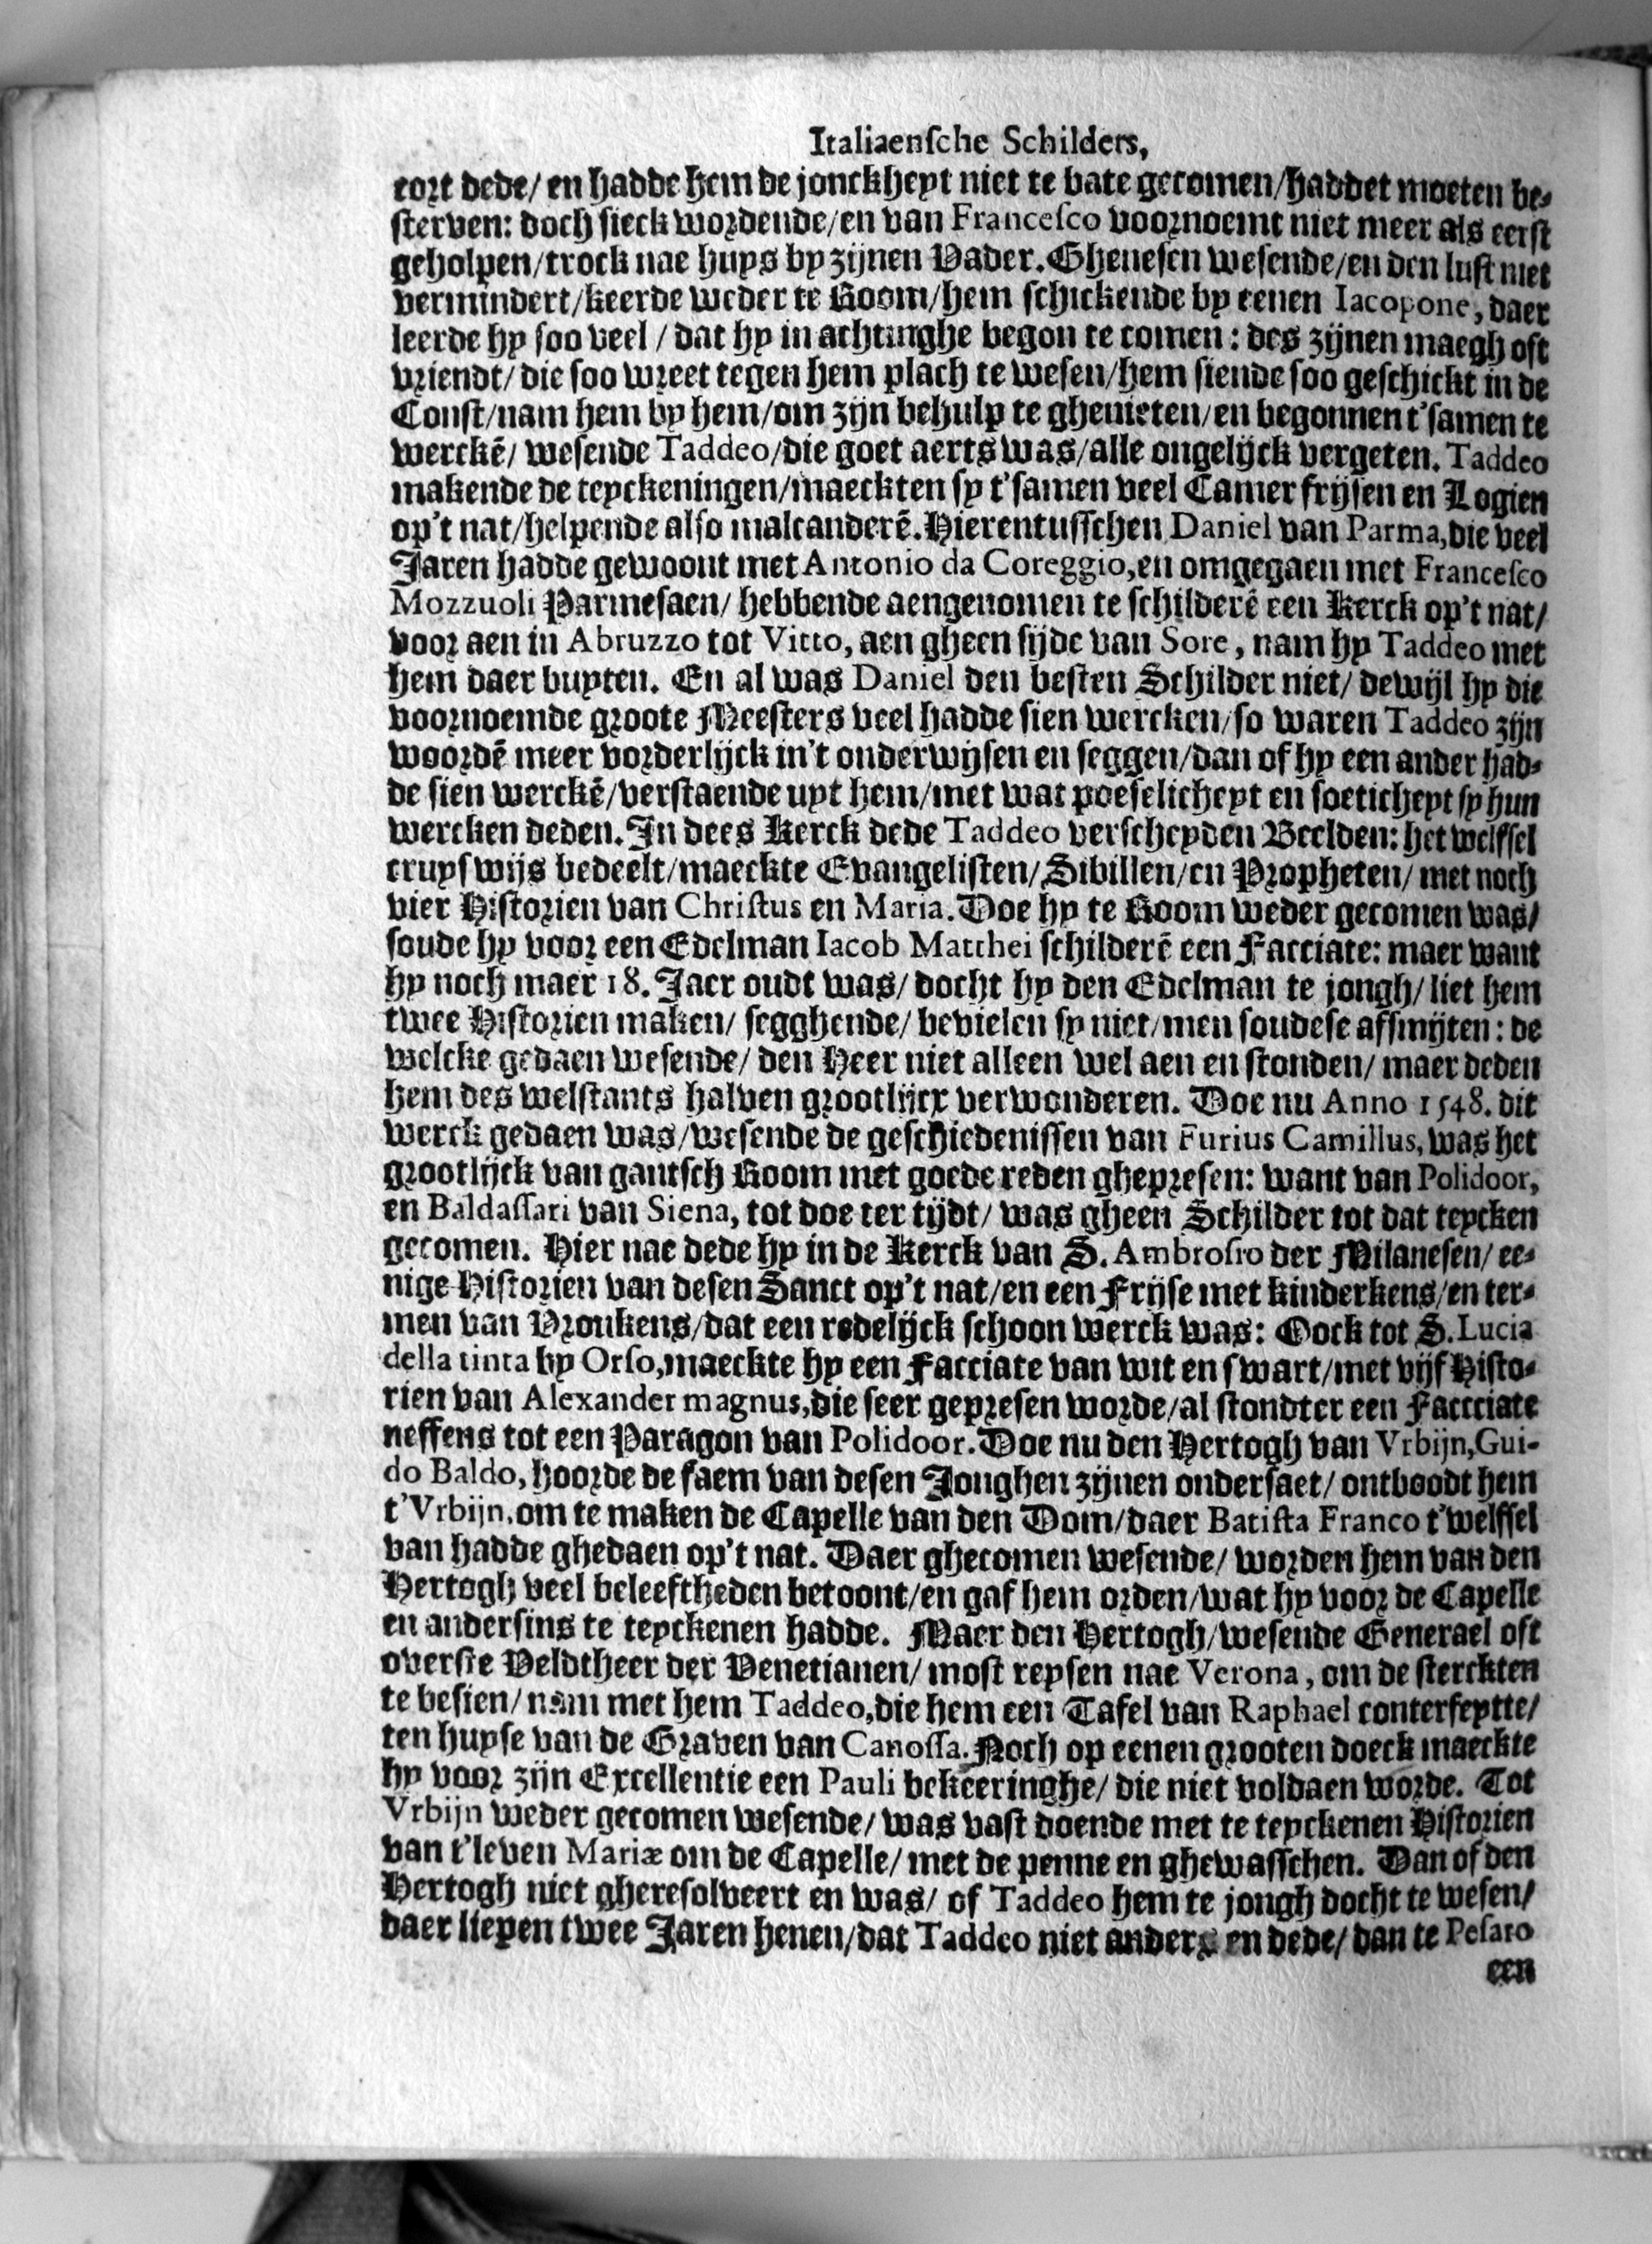 Italiaensche Schilders,
cort dede/ en hadde hem de jonckheyt niet te bate gecomen/haddet moeten be-
sterven: doch sieck wordende/en van Francesco voornoemt niet meer als eerst
geholpen/trock nae huys by zijnen Vader. Ghenesen wesende/en den lust niet
vermindert/keerde weder te Room/hem schickende by eenen Iacopone, daer
leerde hy soo veel / dat hy in achtinghe begon te comen: des zijnen maegh oft
vriendt/ die soo wreet tegen hem plach te wesen/hem siende soo geschickt in de
Const/nam hem by hem/om zijn behulp te ghenieten/en begonnen t'samen te
werckē/ wesende Taddeo/die goet aerts was/alle ongelijck vergeten. Taddeo
makende de teyckeningen/maeckten sy t'samen veel Camer frijsen en Logien
op't nat/helpende also malcanderē. Hierentusschen Daniel van Parma, die veel
Jaren hadde gewoont met Antonio da Coreggio, en omgegaen met Francesco
Mozzuoli Parmesaen/ hebbende aengenomen te schilderē een Kerck op't nat/
voor aen in Abruzzo tot Vitto, aen gheen sijde van Sore, nam hy Taddeo met
hem daer buyten. En al was Daniel den besten Schilder niet/ dewijl hy die
voornoemde groote Meesters veel hadde sien wercken/so waren Taddeo zijn
woordē meer vorderlijck in't onderwijsen en seggen/dan of hy een ander had-
de sien werckē/verstaende uyt hem/met wat poeselicheyt en soeticheyt sy hun
wercken deden. In dees Kerck dede Taddeo verscheyden Beelden: het welfsel
cruyswijs bedeelt/maeckte Evangelisten/Sibillen/en Propheten/ met noch
vier Historien van Christus en Maria. Doe hy te Room weder gecomen was/
soude hy voor een Edelman Iacob Matthei schilderē een Facciate: maer want
hy noch maer 18. Jaer oudt was/ docht hy den Edelman te jongh/ liet hem
twee Historien maken/ segghende/ bevielen sy niet/men soudese afsmijten: de
welcke gedaen wesende/ den Heer niet alleen wel aen en stonden/ maer deden
hem des welstants halven grootlijcx verwonderen. Doe nu Anno 1548. dit
werck gedaen was/wesende de geschiedenissen van Furius Camillus, was het
grootlijck van gantsch Room met goede reden ghepresen: want van Polidoor,
en Baldassari van Siena, tot doe ter tijdt/ was gheen Schilder tot dat teycken
gecomen. Hier nae dede hy in de Kerck van S. Ambrosio der Milanesen/ ee-
nige Historien van desen Sanct op't nat/en een Frijse met kinderkens/en ter-
men van Vroukens/dat een redelijck schoon werck was: Oock tot S. Lucia
della tinta by Orso, maeckte hy een Facciate van wit en swart/met vijf Histo-
rien van Alexander magnus, die seer gepresen worde/al stondter een Faccciate
neffens tot een Paragon van Polidoor. Doe nu den Hertogh van Vrbijn, Gui-
do Baldo, hoorde de faem van desen Jonghen zijnen ondersaet/ ontboodt hem
t'Vrbijn, om te maken de Capelle van den Dom/daer Batista Franco t'welfsel
van hadde ghedaen op't nat. Daer ghecomen wesende/ worden hem van den
Hertogh veel beleeftheden betoont/en gaf hem orden/wat hy voor de Capelle
en andersins te teyckenen hadde. Maer den Hertogh/wesende Generael oft
overste Veldtheer der Venetianen/ most reysen nae Verona, om de sterckten
te besien/ nam met hem Taddeo, die hem een Tafel van Raphael conterfeytte/
ten huyse van de Graven van Canossa. Noch op eenen grooten doeck maeckte
hy voor zijn Excellentie een Pauli bekeeringhe/ die niet voldaen worde. Tot
Vrbijn weder gecomen wesende/ was vast doende met te teyckenen Historien
van t'leven Mariæ om de Capelle/ met de penne en ghewasschen. Dan of den
Hertogh niet gheresolveert en was/ of Taddeo hem te jongh docht te wesen/
daer liepen twee Jaren henen/dat Taddeo niet anders en dede/ dan te Pesaro
een